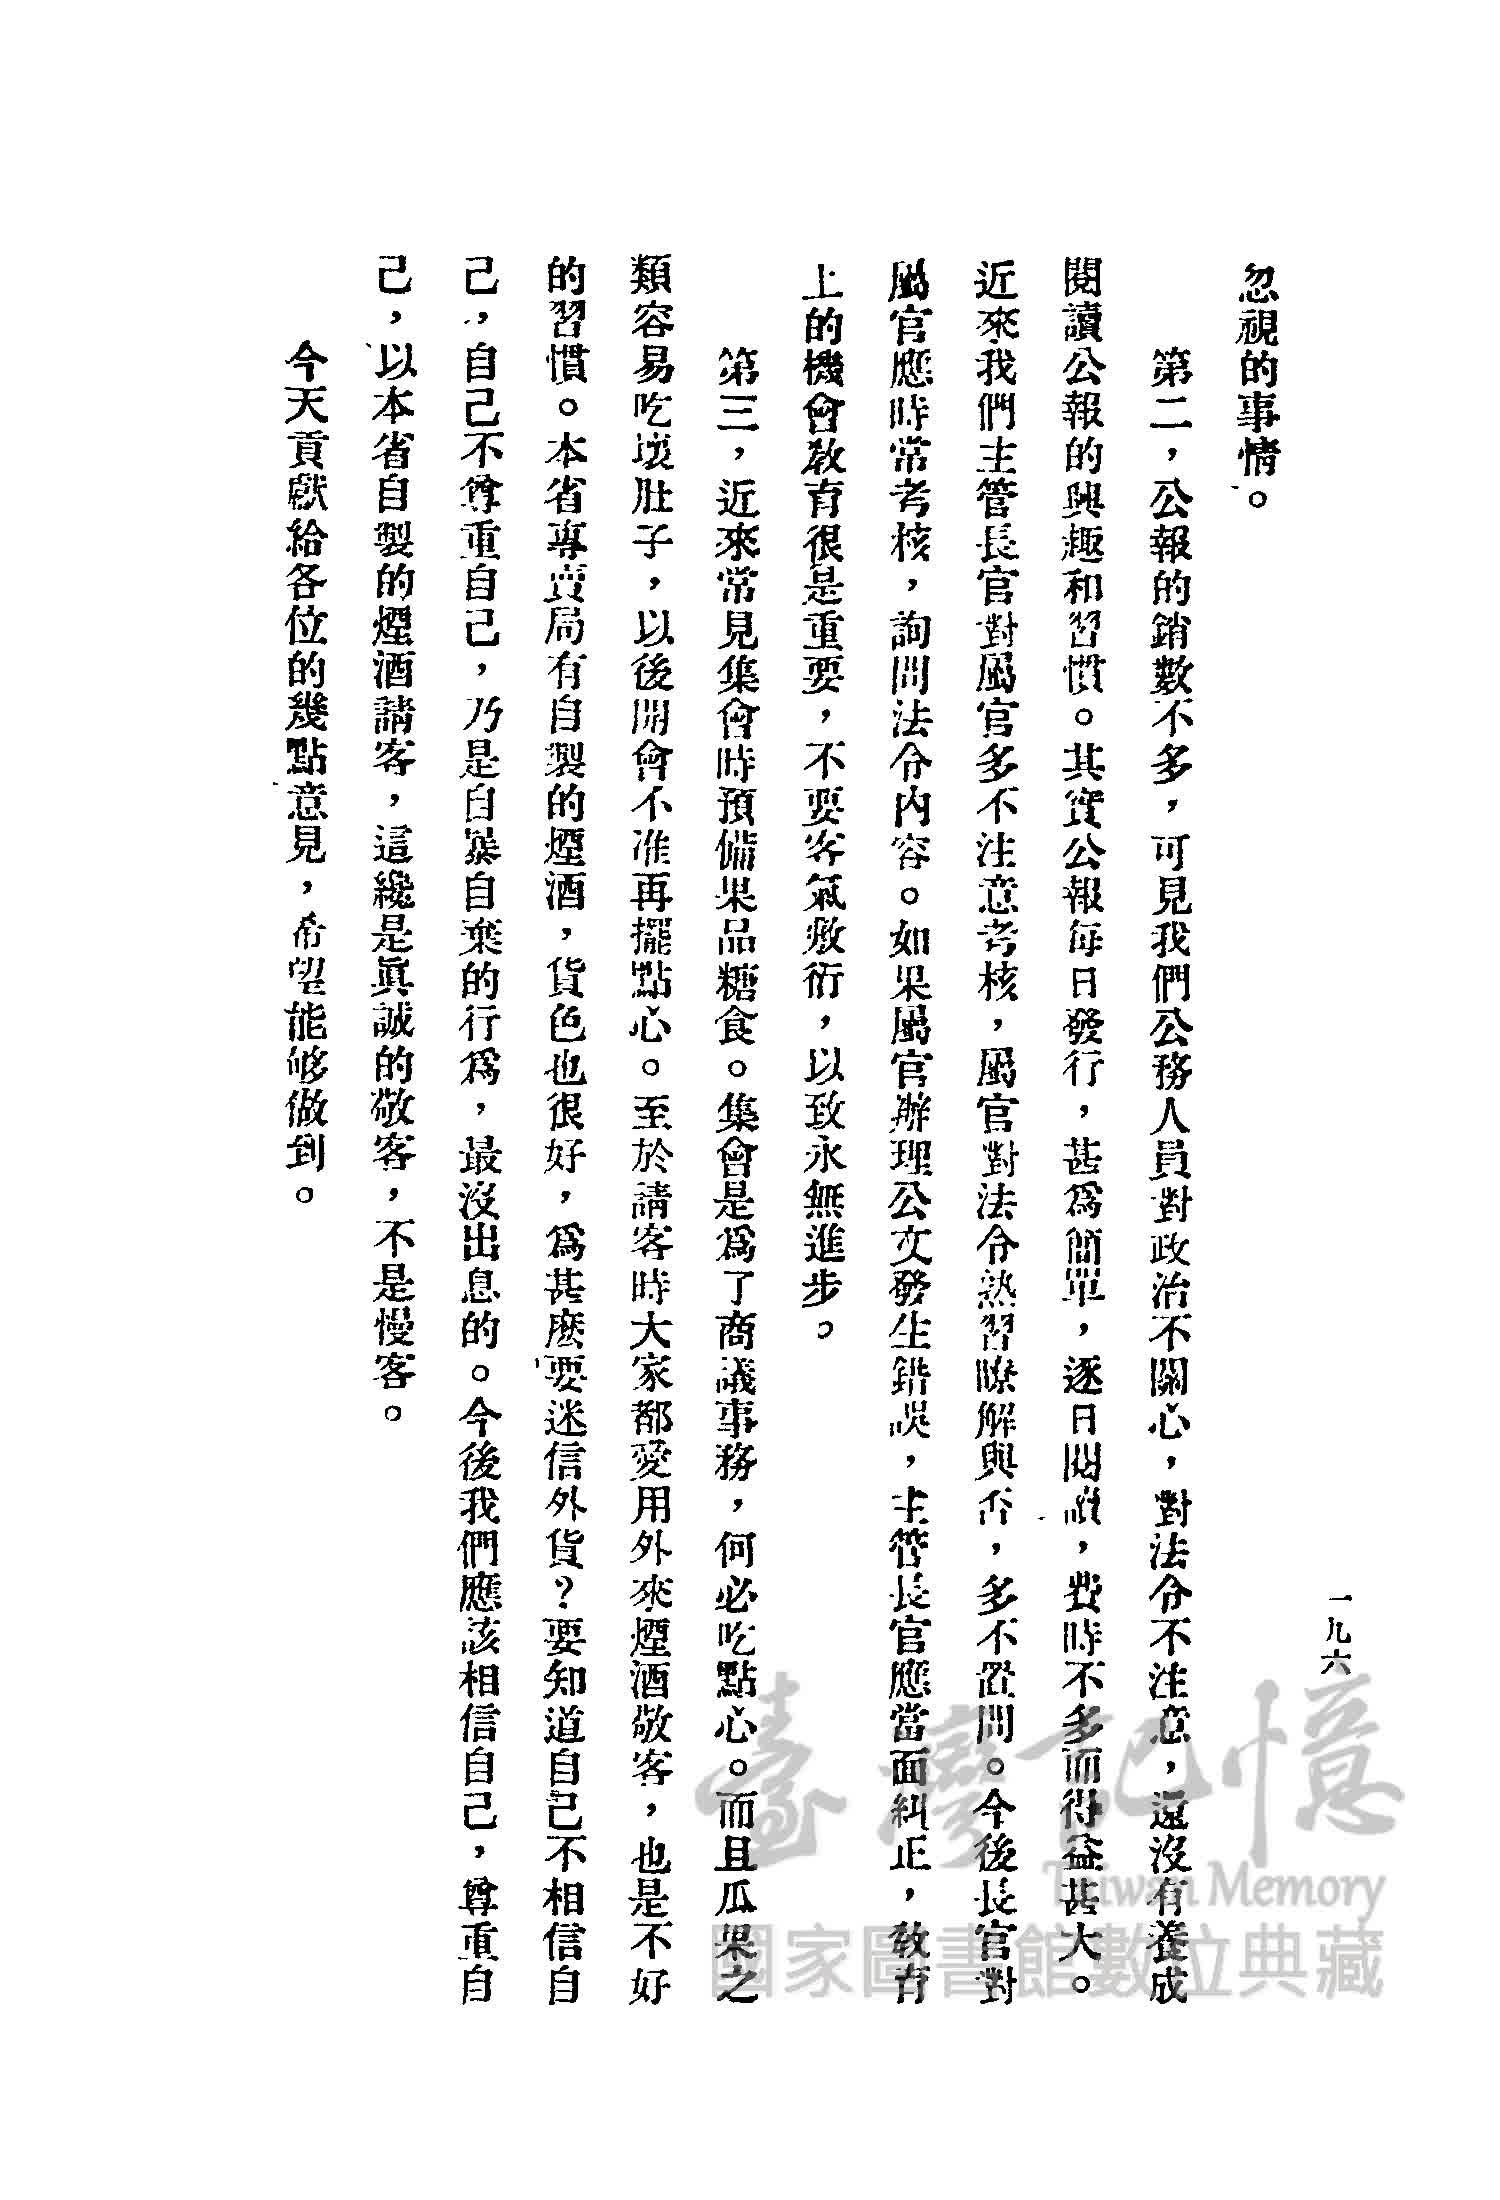 一九六
忽視的事情。
第二，公報的銷數不多，可見我們公務人員對政治不關心，對法令不注意，還沒有養成
閱讀公報的興趣和習慣。其實公報每日發行，甚爲簡單，逐日閱讀，費時不多而得益甚大。
近來我們主管長官對屬官多不注意考核，屬官對法令熟習瞭解與否，多不置問。今後長官對
屬官應時常考核，詢問法令內容。如果屬官辦理公文發生錯誤，主管長官應當面糾正，教育
上的機會教育很是重要，不要客氣敷衍，以致永無進步。
第三，近來常見集會時預備果品糖食。集會是爲了商議事務，何必吃點心。而且瓜果之
類容易吃壞肚子，以後開會不准再擺點心。至於請客時大家都愛用外來煙酒敬客，也是不好
的習慣。本省專賣局有自製的煙酒，貨色也很好，爲甚麼要迷信外貨？要知道自己不相信自
己，自己不尊重自己，乃是自暴自棄的行爲，最沒出息的。今後我們應該相信自己，尊重自
己，以本省自製的煙酒請客，這纔是眞誠的敬客，不是慢客。
今天貢獻給各位的幾點意見，希望能够做到。
臺灣記憶
Taiwan Memory
國家圖書館數位典藏